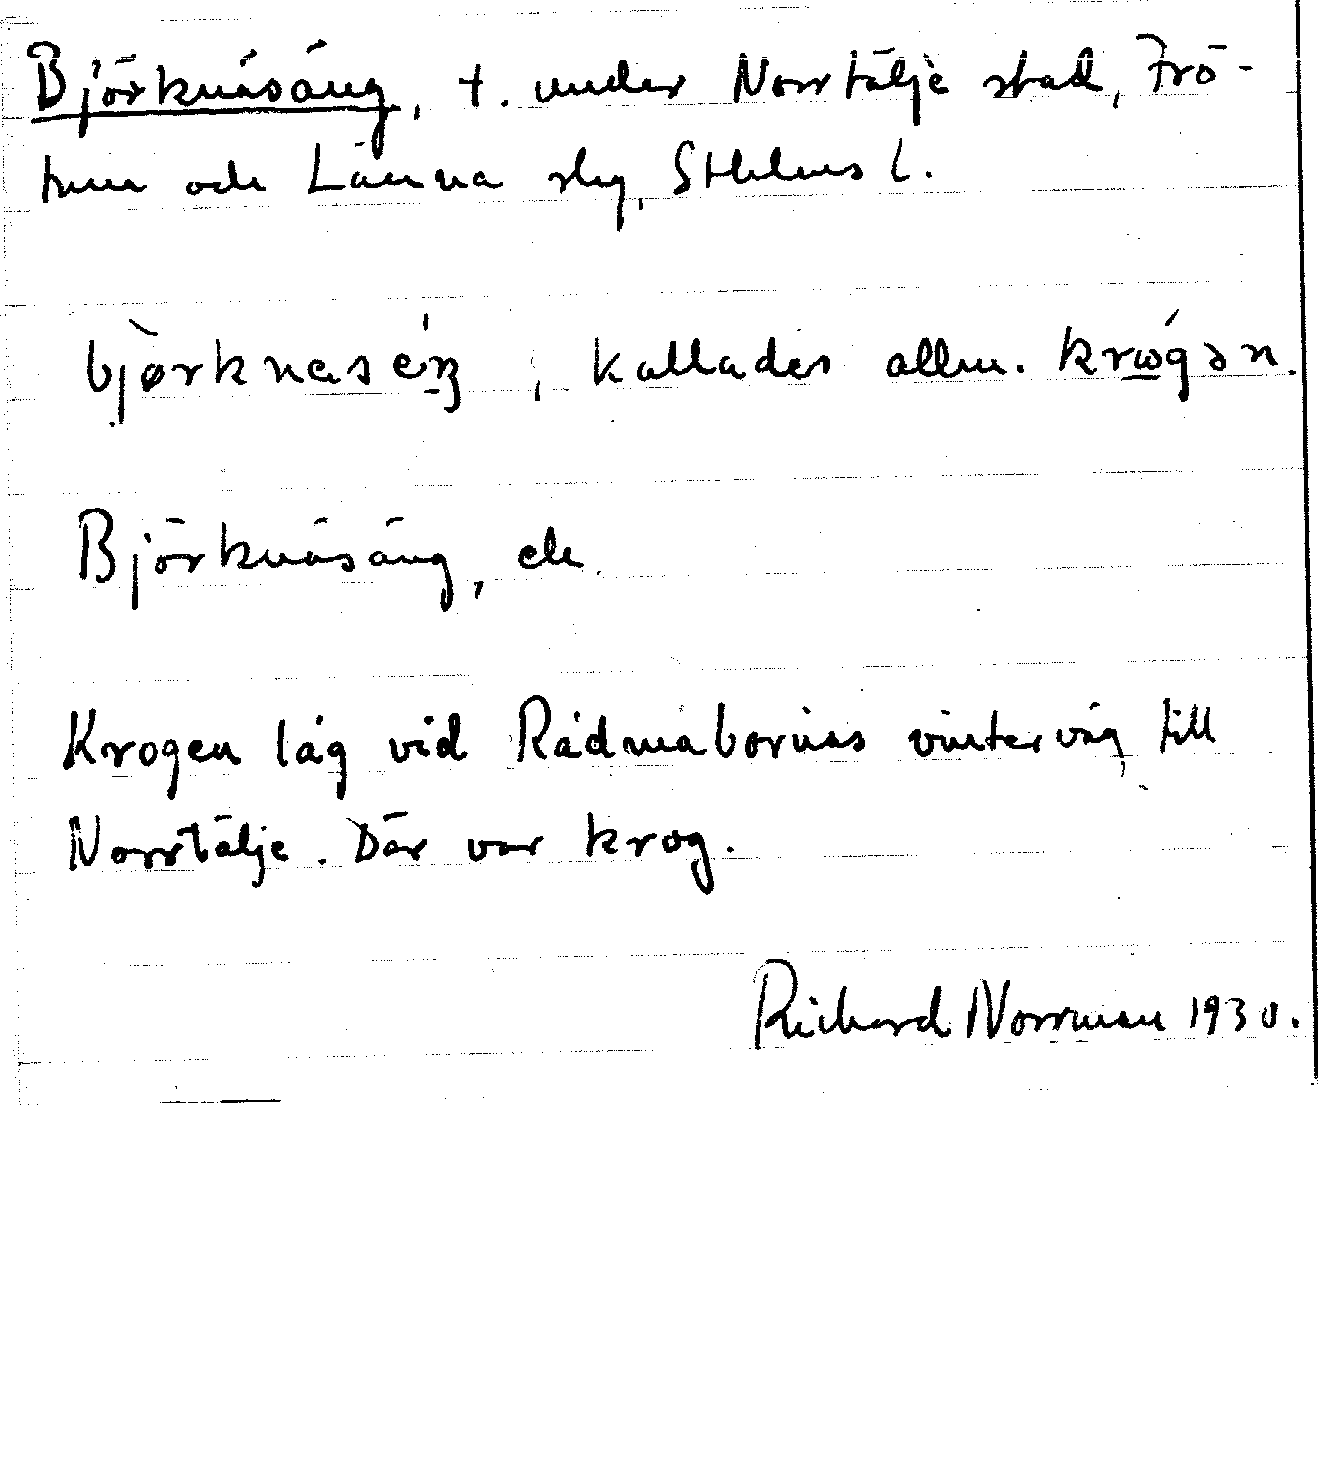 Björknäsäng, t. under Norrtälje stad, Frö-
tuna och Länna slg, Sthlms l.
bjørknæsɛ́ŋ, kallades allm. krωǵən.
Björknäsäng, ek
Krogen låg vid Rådmabornas vinterväg till
Norrtälje. Där var krog.
Richard Norrman 1930.